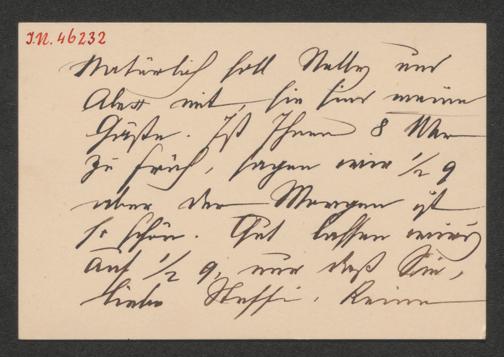 J.N. 46232
Natürlich soll Nelly und
Alex mit, sie sind meine
Gäste. Ist Ihnen 8 Uhr
zu früh, sagen wir 1/2 9
aber der Morgen ist
so schön. Gut lassen wirs
auf 1/2 9, nur daß Sie,
liebe Steffi, keine